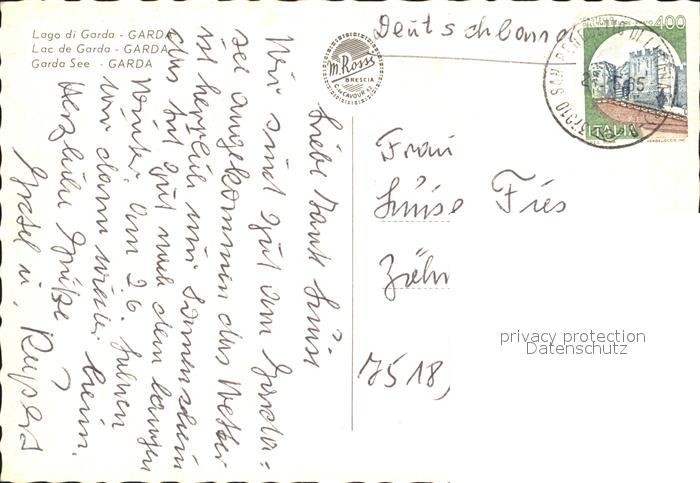 Lago di Garda - GARDA
Lac de Garda - GARDA
Garda See - GARDA
m. Rossi
BRESCIA
C. CAVOUR 52
Deutschland
400
ITALIA
37010 SAN
85
Liebe Tante Luise
Wir sind gut am Garda=
see angekommen das Wetter
ist herrlich nur Sonnenschein
das tut gut nach dem langen
Winter. Am 26. fahren
wir dann wieder heim.
Herzliche Grüße
Gretel u. Rupert
Frau
Luise Fies
7518,
privacy protection
Datenschutz